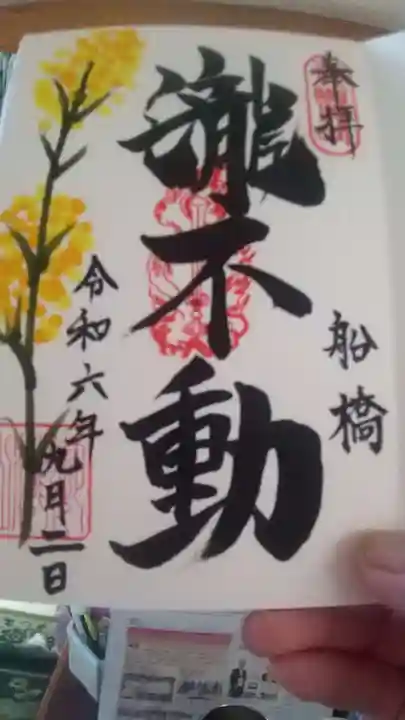 奉拝
船橋
瀧不動
令和六年九月二日